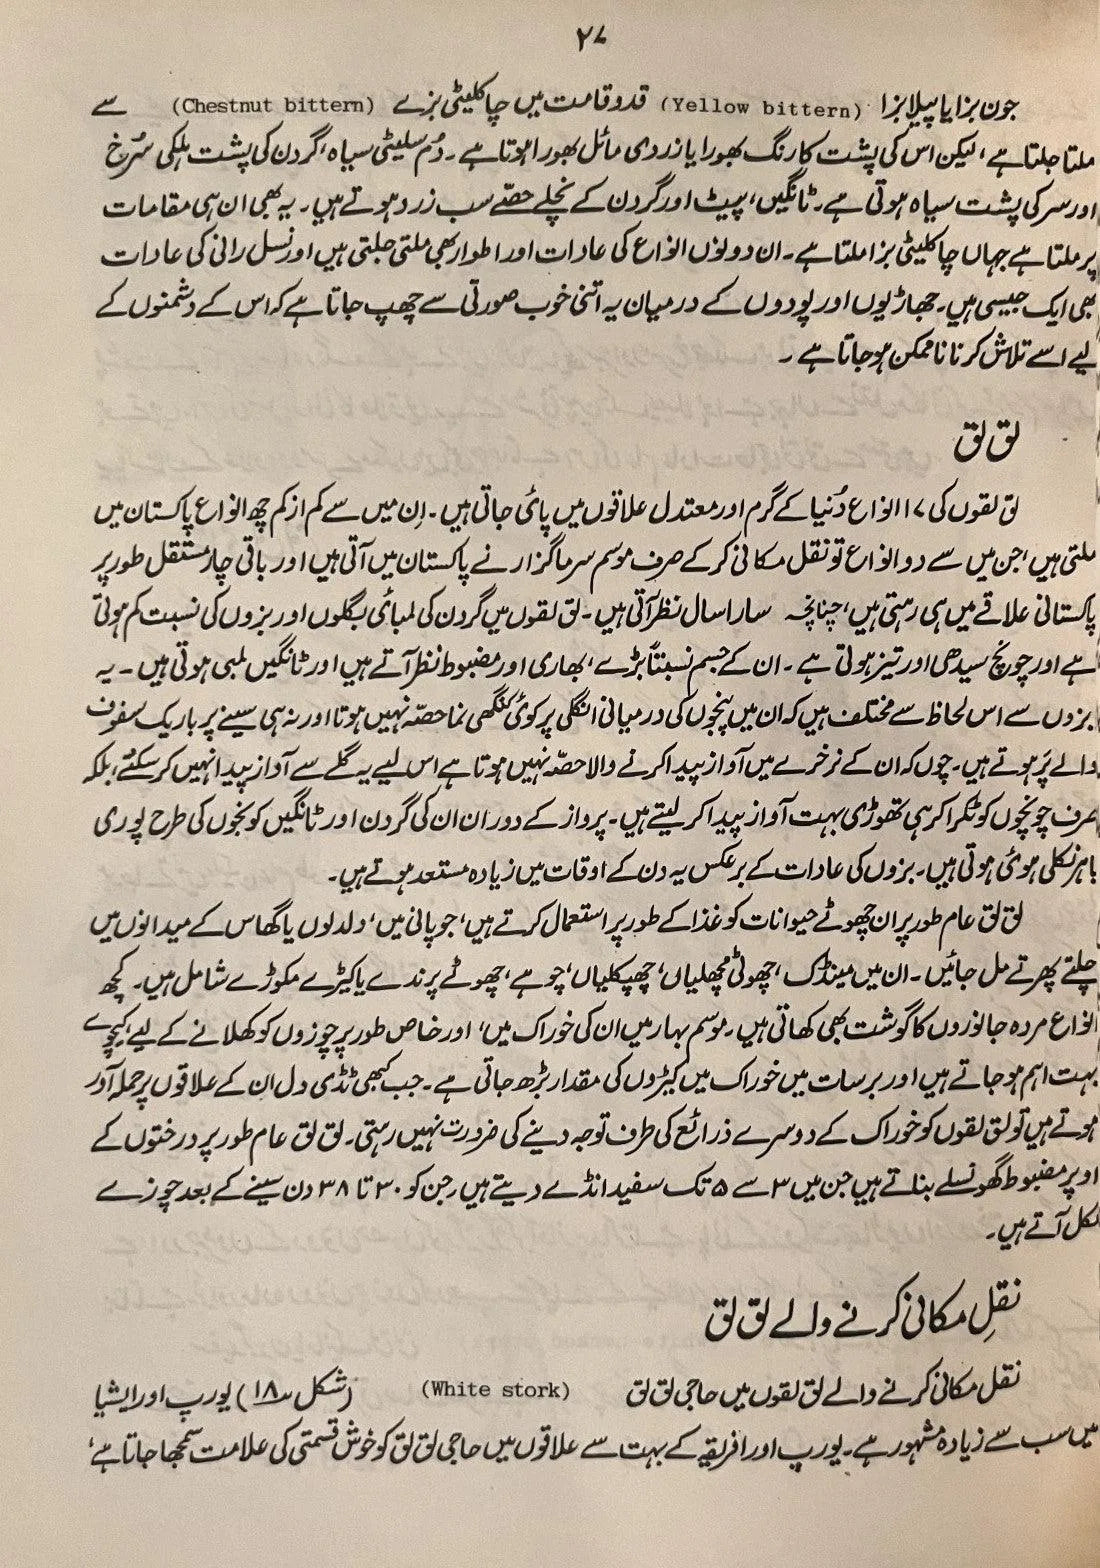 ۲۷
جون بزا یا پیلا بزا (Yellow bittern) قد و قامت میں چاکلیٹی بزے (Chestnut bittern) سے
ملتا جلتا ہے، لیکن اس کی پشت کا رنگ بھورا یا زردی مائل بھورا ہوتا ہے۔ دُم سلیٹی سیاہ، گردن کی پشت ہلکی سُرخ
اور سر کی پشت سیاہ ہوتی ہے۔ ٹانگیں، پیٹ اور گردن کے نچلے حصّے سب زرد ہوتے ہیں۔ یہ بھی ان ہی مقامات
پر ملتا ہے جہاں چاکلیٹی بزا ملتا ہے۔ ان دونوں انواع کی عادات اور اطوار بھی ملتی جلتی ہیں اور نسل رانی کی عادات
بھی ایک جیسی ہیں۔ جھاڑیوں اور پودوں کے درمیان یہ اتنی خوب صورتی سے چھپ جاتا ہے کہ اس کے دشمنوں کے
لیے اسے تلاش کرنا ناممکن ہو جاتا ہے۔
لق لق
لق لقوں کی ۱۷ انواع دُنیا کے گرم اور معتدل علاقوں میں پائی جاتی ہیں۔ اِن میں سے کم از کم چھ انواع پاکستان میں
ملتی ہیں، جن میں سے دو انواع تو نقل مکانی کر کے صرف موسم سرما گزارنے پاکستان میں آتی ہیں اور باقی چار مستقل طور پر
پاکستانی علاقے میں ہی رہتی ہیں، چنانچہ سارا سال نظر آتی ہیں۔ لق لقوں میں گردن کی لمبائی بگلوں اور بزوں کی نسبت کم ہوتی
ہے اور چونچ سیدھی اور تیز ہوتی ہے۔ ان کے جسم نسبتاً بڑے، بھاری اور مضبوط نظر آتے ہیں اور ٹانگیں لمبی ہوتی ہیں۔ یہ
بزوں سے اس لحاظ سے مختلف ہیں کہ ان میں پنجوں کی درمیانی انگلی پر کوئی کنگھی نما حصّہ نہیں ہوتا اور نہ ہی سینے پر باریک سفوف
والے پَر ہوتے ہیں۔ چوں کہ ان کے نرخرے میں آواز پیدا کرنے والا حصّہ نہیں ہوتا ہے اس لیے یہ گلے سے آواز پیدا نہیں کر سکتے، بلکہ
صرف چونچوں کو ٹکرا کر ہی تھوڑی بہت آواز پیدا کر لیتے ہیں۔ پرواز کے دوران ان کی گردن اور ٹانگیں کونجوں کی طرح پوری
باہر نکلی ہوئی ہوتی ہیں۔ بزوں کی عادات کے برعکس یہ دن کے اوقات میں زیادہ مستعد ہوتے ہیں۔
لق لق عام طور پر ان چھوٹے حیوانات کو غذا کے طور پر استعمال کرتے ہیں، جو پانی میں، دلدلوں یا گھاس کے میدانوں میں
چلتے پھرتے مل جائیں۔ ان میں مینڈک، چھوٹی مچھلیاں، چھپکلیاں، چوہے، چھوٹے پرندے یا کیڑے مکوڑے شامل ہیں۔ کچھ
انواع مردہ جانوروں کا گوشت بھی کھاتی ہیں۔ موسم بہار میں ان کی خوراک میں، اور خاص طور پر چوزوں کو کھلانے کے لیے، کیچوے
بہت اہم ہو جاتے ہیں اور برسات میں خوراک میں کیڑوں کی مقدار بڑھ جاتی ہے۔ جب کبھی ٹڈی دل ان کے علاقوں پر حملہ آور
ہوتے ہیں تو لق لقوں کو خوراک کے دوسرے ذرائع کی طرف توجہ دینے کی ضرورت نہیں رہتی۔ لق لق عام طور پر درختوں کے
اوپر مضبوط گھونسلے بناتے ہیں جن میں ۳ سے ۵ تک سفید انڈے دیتے ہیں، جن کو ۳۰ تا ۳۸ دن سینے کے بعد چوزے
نکل آتے ہیں۔
نقلِ مکانی کرنے والے لق لق
نقل مکانی کرنے والے لق لقوں میں حاجی لق لق (White stork) (شکل ۱۸) یورپ اور ایشیا
میں سب سے زیادہ مشہور ہے۔ یورپ اور افریقہ کے بہت سے علاقوں میں حاجی لق لق کو خوش قسمتی کی علامت سمجھا جاتا ہے،